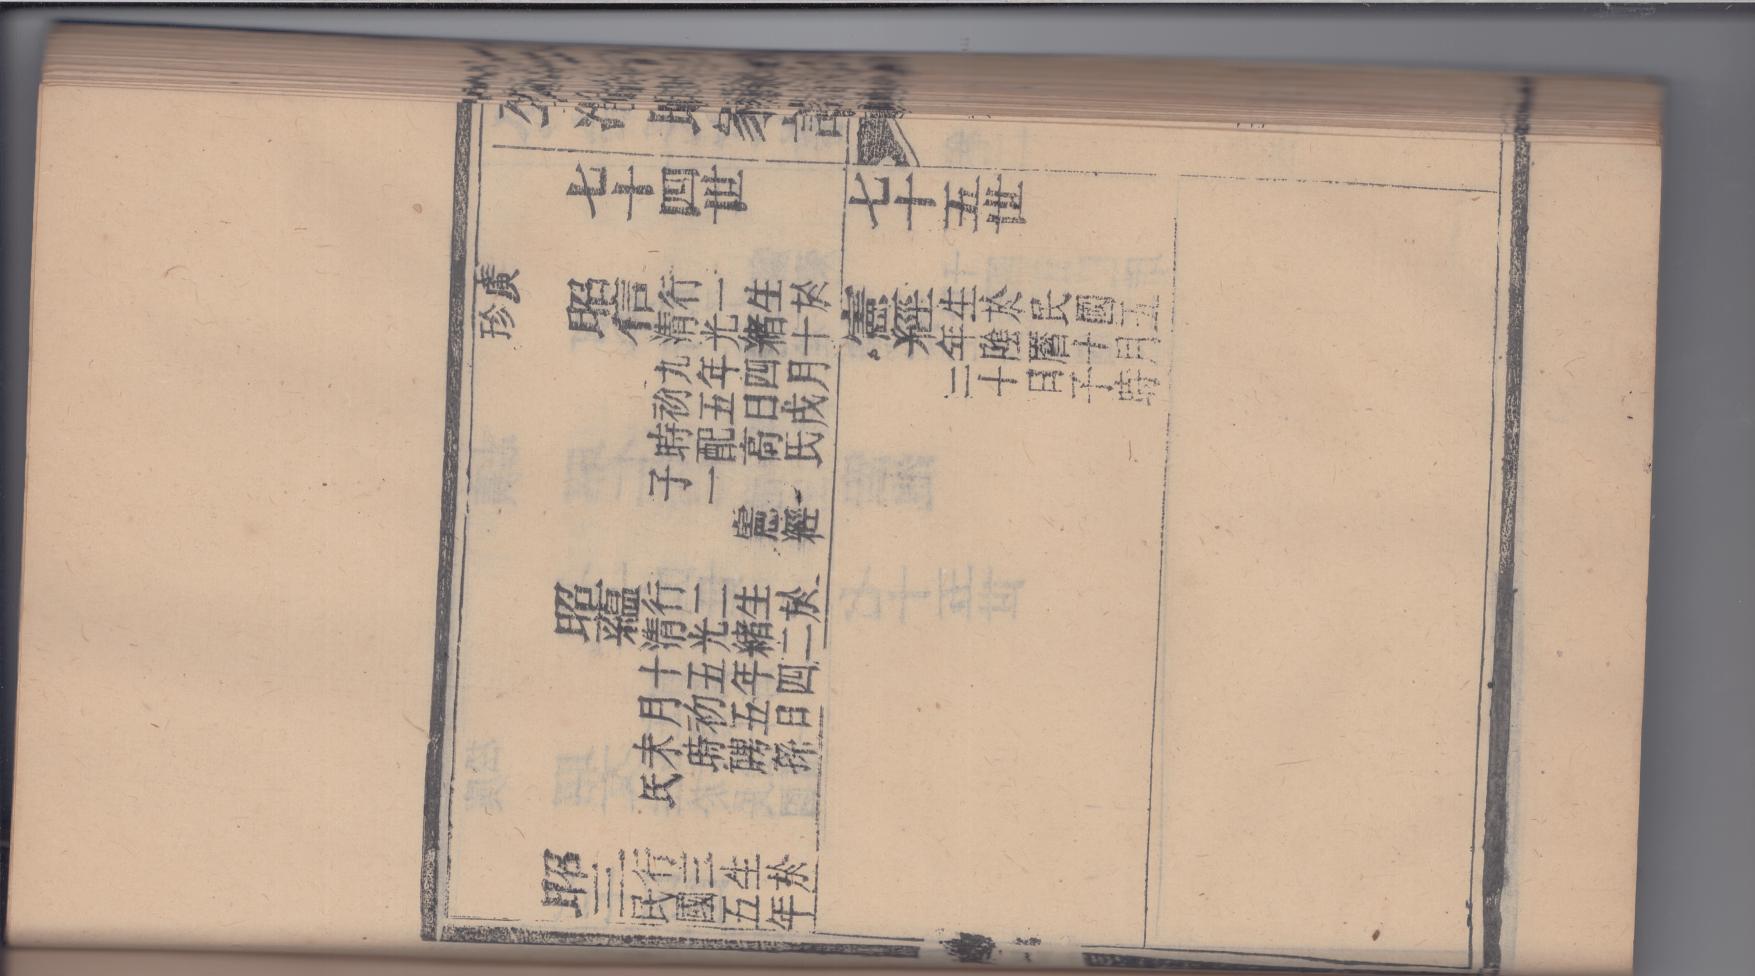 家譜
七十四世
七十五世
廣
珍
昭信
行一生於
清光緒十
九年四月
初五日戌
時配高氏
子一
憲經
憲經
生於民國五
年陰曆十月
二十日子時
昭蘊
行二生於
清光緒二
十五年四
月初五日
未時聘孫
氏
昭三
行三生於
民國五年